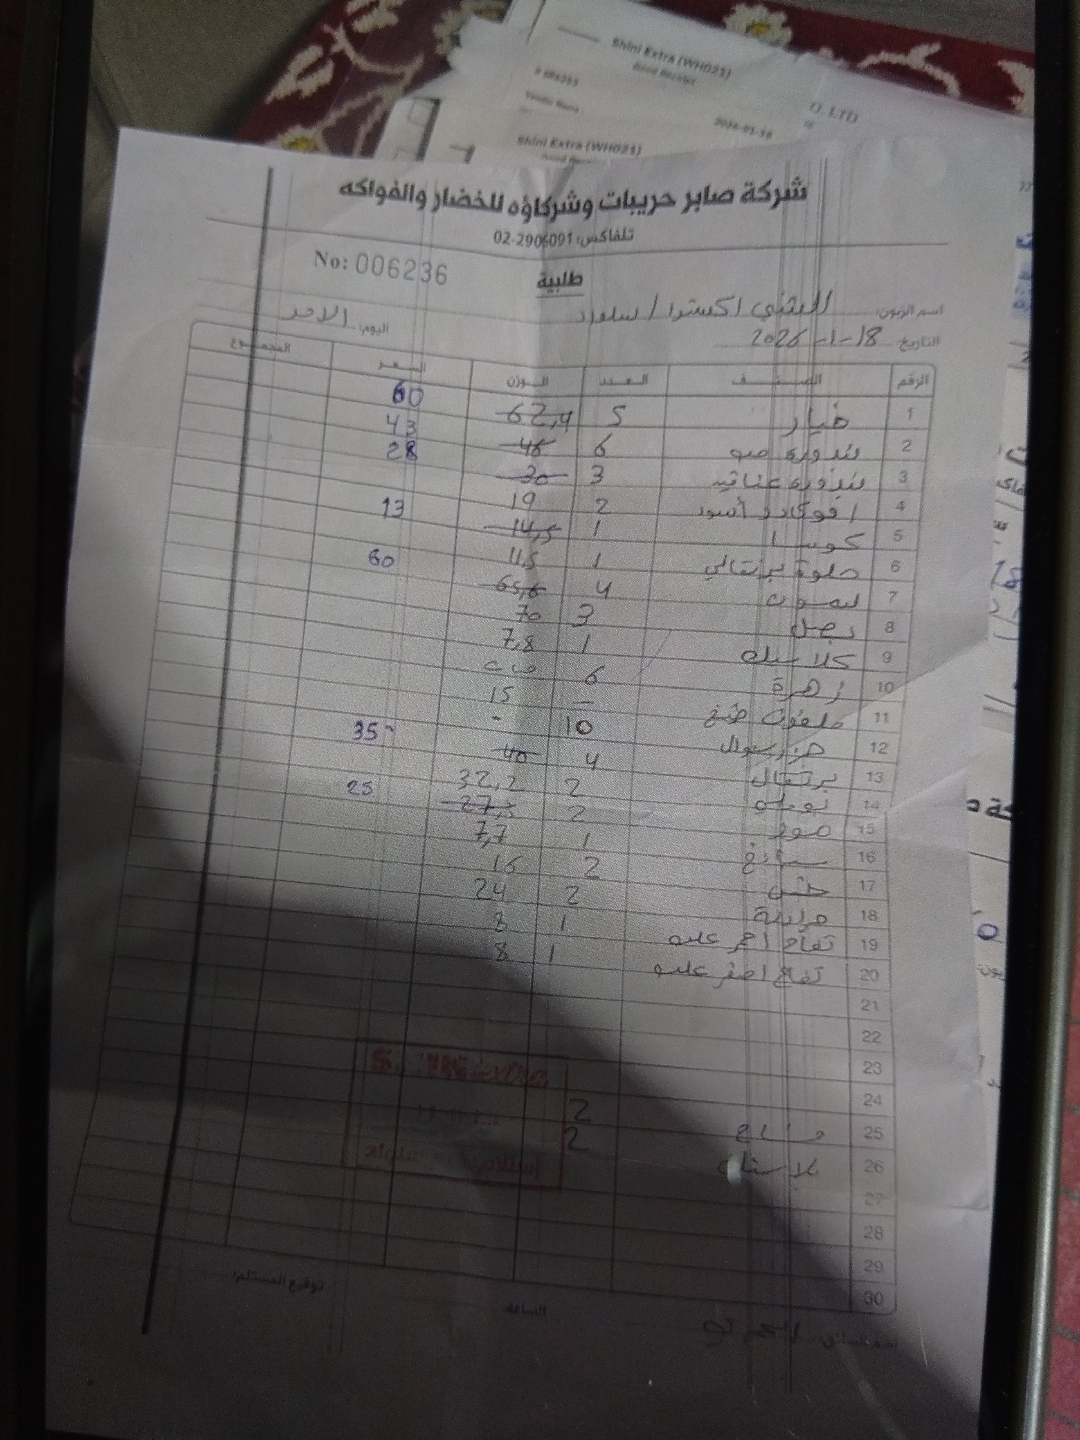 Shini Extra (WH021)
Good Receipt
Shini Extra (WH021)
O. LTD
شركة صابر حريبات وشركاؤه للخضار والفواكه
تلفاكس: 02-2906091
No: 006236
طلبية
اسم الزبون: الشني اكسترا / سلواد
التاريخ 18-1-2026 اليوم: الاحد
الرقم الصنف العدد الوزن السعر المجموع
1 خيار 5 62,4 60
2 بندورة 6 46 43
3 بندورة عناقيد 3 30 28
4 افوكادو أسود 2 19
5 كوسا 1 14,5 13
6 حلوة برتقالي 1 11,5
7 ليمون 4 65,6 60
8 بصل 3 70
9 1 7,8
10 زهرة 6
11 ملفوف 15
12 جزر 10 -
13 برتقال 4 40 35
14 بوملو 2 32,2
15 موز 2 27,5 25
16 سبانخ 1 7,7
17 2 16
18 2 24
19 تفاح احمر علب 1 8
20 تفاح اصفر علب 1 8
21
22
23
24
25 2
26 بلاستك 2
27
28
29
30
الساعة توقيع المستلم: